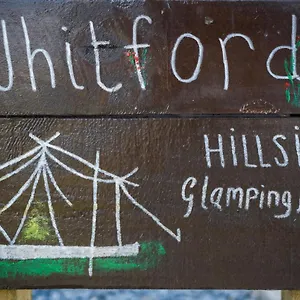 Whitford
HILLSI
Glamping